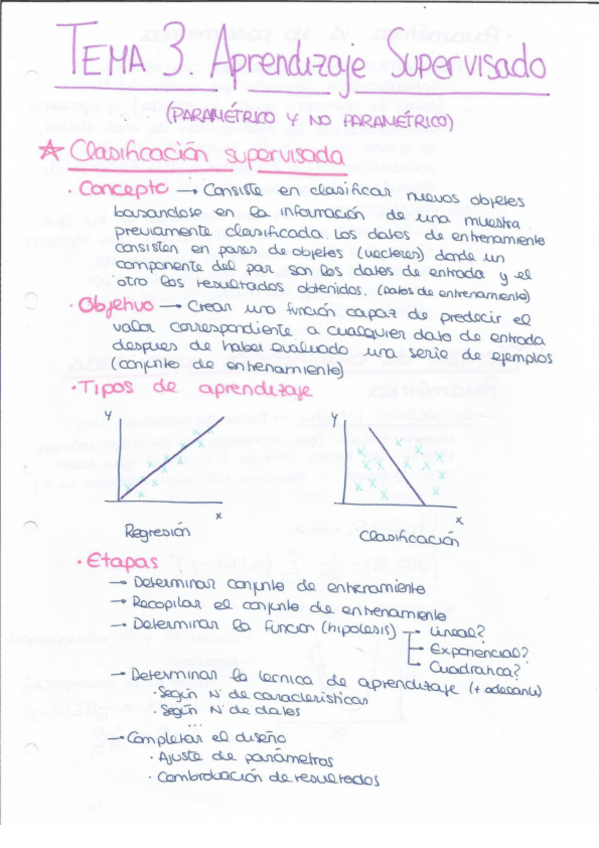 TEMA 3. Aprendizaje Supervisado
(PARAMÉTRICO Y NO PARAMÉTRICO)
☆ Clasificación supervisada
· Concepto → Consiste en clasificar nuevos objetos
basandose en la información de una muestra
previamente clasificada. Los datos de entrenamiento
consisten en pares de objetos (vectores) donde un
componente del par son los datos de entrada y el
otro los resultados obtenidos. (datos de entrenamiento)
· Objetivo → Crear una función capaz de predecir el
valor correspondiente a cualquier dato de entrada
despues de haber evaluado una serie de ejemplos
(conjunto de entrenamiento)
· Tipos de aprendizaje
Y
x
Regresión
Y
x
Clasificación
· Etapas
→ Determinar conjunto de entrenamiento
→ Recopilar el conjunto de entrenamiento
→ Determinar la función (hipotesis) → Lineal?
→ Exponencial?
→ Cuadratica?
→ Determinar la tecnica de aprendizaje (+ adelante)
· Según Nº de caracteristicas
· Según Nº de datos
...
→ Completar el diseño
· Ajuste de parámetros
· Combrobación de resultados